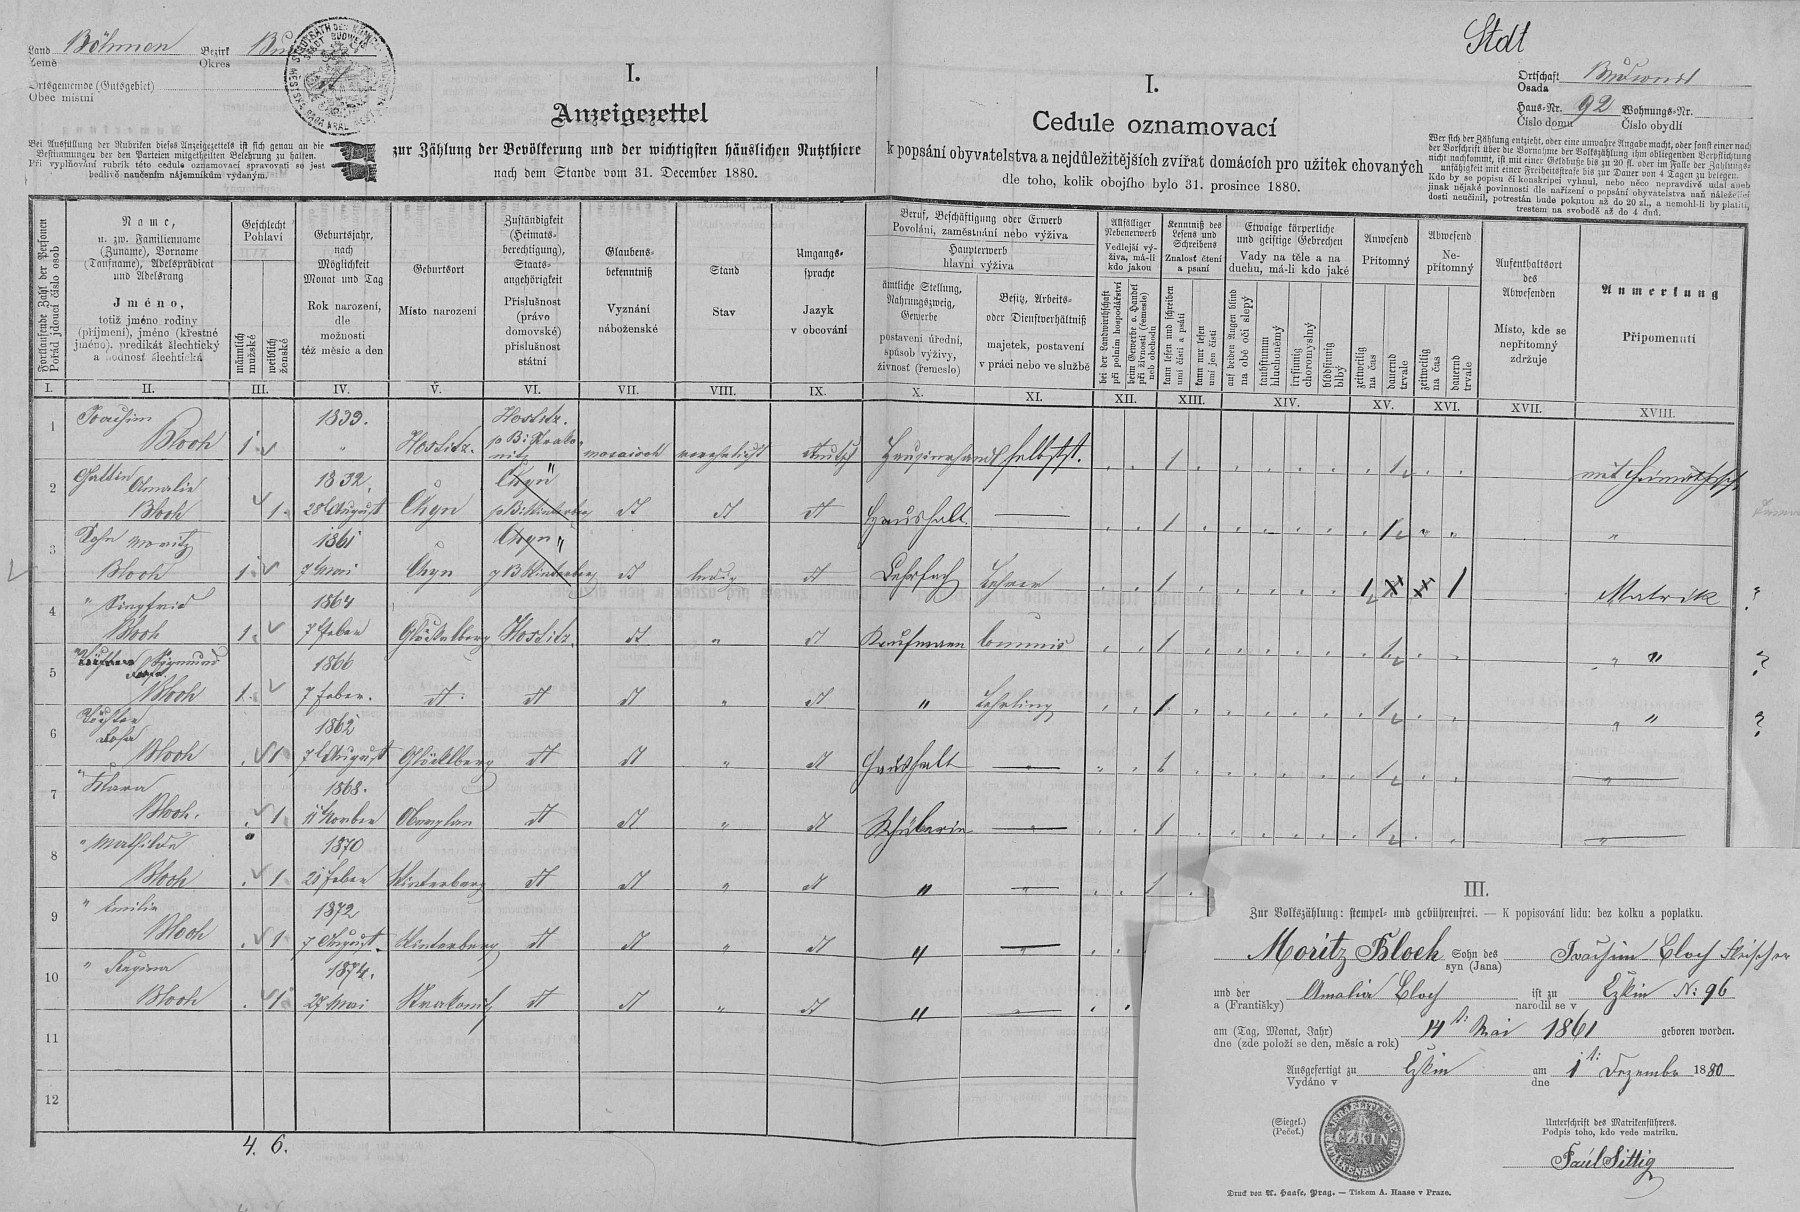 Land Böhmen Bezirk
Země Okres
Ortsgemeinde (Gutsgebiet)
Obec místní
I.
Anzeigezettel
Bei Ausfüllung der Rubriken dieses Anzeigezettels ist sich genau an die
Bestimmungen der den Parteien mitgetheilten Belehrung zu halten.
Při vyplňování rubrik této cedule oznamovací spravovati se jest
bedlivě naučením nájemníkům vydaným.
zur Zählung der Bevölkerung und der wichtigsten häuslichen Nutzthiere
nach dem Stande vom 31. December 1880.
Stdt
I.
Cedule oznamovací
k popsání obyvatelstva a nejdůležitějších zvířat domácích pro užitek chovaných
dle toho, kolik obojího bylo 31. prosince 1880.
Ortschaft Budweis
Osada
Haus-Nr. 92 Wohnungs-Nr.
Číslo domu Číslo obydlí
Wer sich der Zählung entzieht, oder eine unwahre Angabe macht, oder sonst einer nach
der Vorschrift über die Vornahme der Volkszählung ihm obliegenden Verpflichtung
nicht nachkommt, ist mit einer Geldbuße bis zu 20 fl. oder im Falle der Zahlungs-
unfähigkeit mit einer Freiheitsstrafe bis zur Dauer von 4 Tagen zu belegen.
Kdo by se popisu či konskripcí vyhnul, nebo něco nepravdivě udal aneb
jinak nějaké povinnosti dle nařízení o popsání obyvatelstva naň náležející
dosti neučinil, potrestán bude pokutou až do 20 zl., a nemohl-li by platiti,
trestem na svobodě až do 4 dnů.
Fortlaufende Zahl der Personen
Pořád jdoucí číslo osob
Name,
u. zw. Familienname
(Zuname), Vorname
(Taufname), Adelsprädicat
und Adelsrang
Jméno,
totiž jméno rodiny
(příjmení), jméno (křestné
jméno), predikát šlechtický
a hodnost šlechtická
Geschlecht
Pohlaví
männlich
mužské
weiblich
ženské
Geburtsjahr,
nach
Möglichkeit
Monat und Tag
Rok narození,
dle
možnosti
též měsíc a den
Geburtsort
Místo narození
Zuständigkeit
(Heimats-
berechtigung),
Staats-
angehörigkeit
Příslušnost
(právo
domovské)
příslušnost
státní
Glaubens-
bekenntniß
Vyznání
náboženské
Stand
Stav
Umgangs-
sprache
Jazyk
v obcování
Beruf, Beschäftigung oder Erwerb
Povolání, zaměstnání nebo výživa
Haupterwerb
hlavní výživa
ämtliche Stellung,
Nahrungszweig,
Gewerbe
postavení úřední,
spůsob výživy,
živnost (řemeslo)
Besitz, Arbeits-
oder Dienstverhältniß
majetek, postavení
v práci nebo ve službě
Allfälliger
Nebenerwerb
Vedlejší vý-
živa, má-li
kdo jakou
bei der Landwirthschaft
při polním hospodářství
beim Gewerbe o. Handel
při živnosti (řemesle)
neb obchodu
Kenntniß des
Lesens und
Schreibens
Znalost čtení
a psaní
kann lesen und schreiben
umí čísti a psáti
kann nur lesen
umí jen čísti
Etwaige körperliche
und geistige Gebrechen
Vady na těle a na
duchu, má-li kdo jaké
auf beiden Augen blind
na obě oči slepý
taubstumm
hluchoněmý
irrsinnig
choromyslný
blödsinnig
blbý
Anwesend
Přítomný
zeitweilig
na čas
dauernd
trvale
Abwesend
Ne-
přítomný
zeitweilig
na čas
dauernd
trvale
Aufenthaltsort
des
Abwesenden
Místo, kde se
nepřítomný
zdržuje
Anmerkung
Připomenutí
I. II. III. IV. V. VI. VII. VIII. IX. X. XI. XII. XIII. XIV. XV. XVI. XVII. XVIII.
1 Joachim 1839. Hoslitz.
Bloch 1 Hoslitz. mosaisch verehelicht deutsch selbstst. 1 1
2 Gattin Amalie 1832. Čkyn
Bloch 1 28 August Čkyn dt dt dt Haushalt 1 1
3 Sohn Moritz 1861 Čkyn
Bloch 1 7 Mai Čkyn dt ledig dt Lehrfach Lehrer 1 1 1 Matrik ?
4 " Siegfried 1864
Bloch 1 7 Feber Glöckelberg Hoslitz. dt " dt Kaufmann Commis 1 1 " ?
5 Sigmund 1866
Bloch 1 7 Feber. dt dt dt " dt " Lehrling 1 1 " ?
6 Töchter 1862
Rosa
Bloch 1 August Glöcklberg dt dt " dt Haushalt 1 1 "
7 " Klara 1868.
Bloch. 1 11 Novber Oberplan dt dt " dt Schülerin 1 1 "
8 " Mathilde 1870
Bloch 1 Feber Winterberg dt dt " dt " 1
9 " Emilie 1872
Bloch 1 7 August. Winterberg dt dt " dt "
10 " Regina 1874.
Bloch 1 27 Mai Strakonitz dt dt " dt "
11
12
4. 6.
III.
Zur Volkszählung: stempel- und gebührenfrei. — K popisování lidu: bez kolku a poplatku.
Moritz Bloch Sohn des Joachim Bloch
syn (Jana)
und der Amalia Bloch ist zu Czkin N: 96
a (Františky) narodil se v
am (Tag, Monat, Jahr) 14t: Mai 1861 geboren worden.
dne (zde položí se den, měsíc a rok)
Ausgefertigt zu Czkin am 1t: Dezember 1880
Vydáno v dne
(Siegel.)
(Pečeť.)
CZKIN
Unterschrift des Matrikenführers.
Podpis toho, kdo vede matriku.
Paul Sittig
Druck von A. Haase, Prag. — Tiskem A. Haase v Praze.